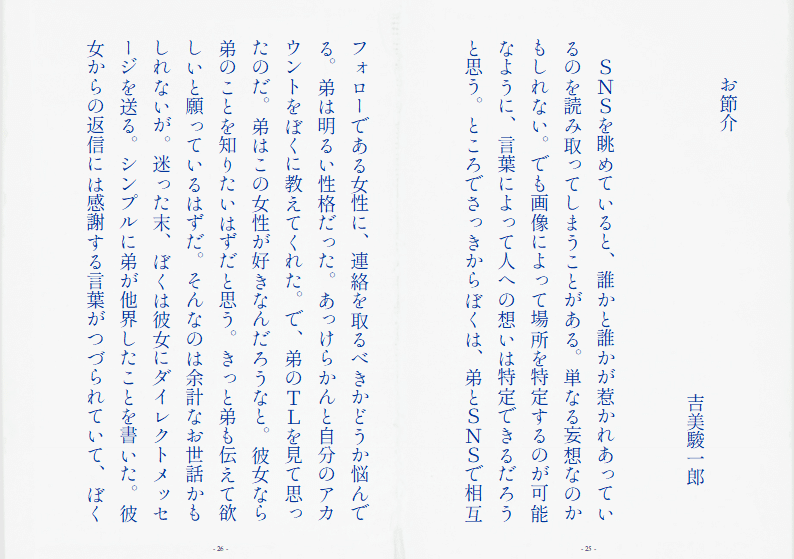 お節介
吉美駿一郎
SNSを眺めていると、誰かと誰かが惹かれあってい
るのを読み取ってしまうことがある。単なる妄想なのか
もしれない。でも画像によって場所を特定するのが可能
なように、言葉によって人への想いは特定できるだろう
と思う。ところでさっきからぼくは、弟とSNSで相互
- 25 -
フォローである女性に、連絡を取るべきかどうか悩んで
る。弟は明るい性格だった。あっけらかんと自分のアカ
ウントをぼくに教えてくれた。で、弟のTLを見て思っ
たのだ。弟はこの女性が好きなんだろうなと。彼女なら
弟のことを知りたいはずだと思う。きっと弟も伝えて欲
しいと願っているはずだ。そんなのは余計なお世話かも
しれないが。迷った末、ぼくは彼女にダイレクトメッセ
ージを送る。シンプルに弟が他界したことを書いた。彼
女からの返信には感謝する言葉がつづられていて、ぼく
- 26 -